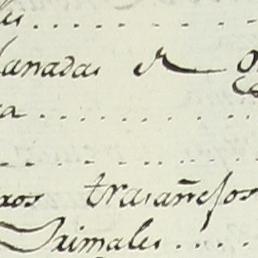 les . . . . . . .
lanadas de
a . . . . . . . .
. . . . . . . .
ros trasañejos
Primales . . . .